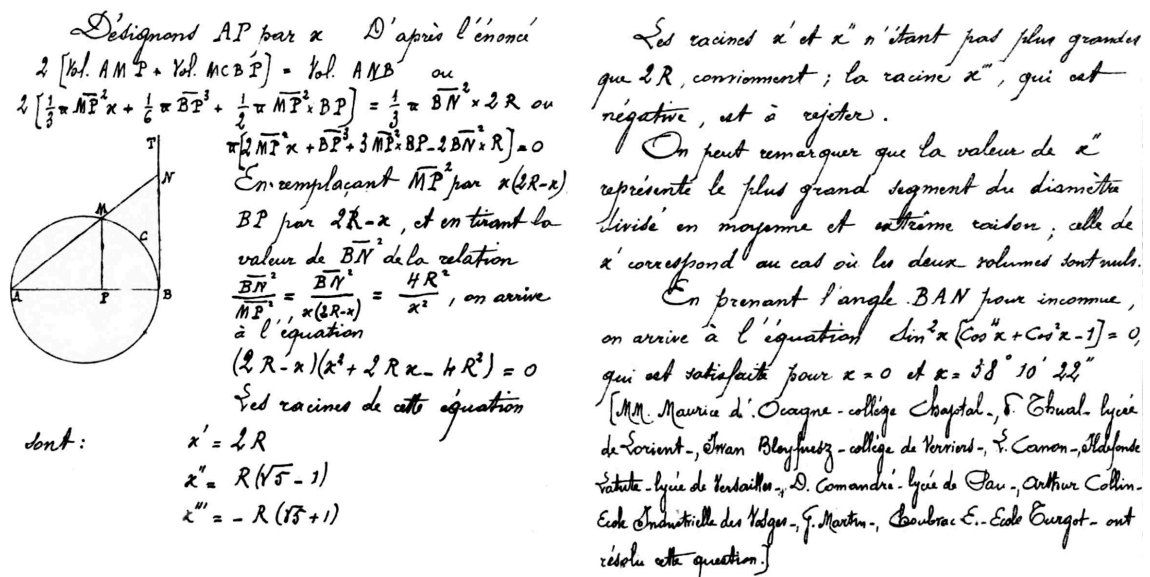 Désignons AP par x D'après l'énoncé
2 [Vol. AMP + Vol. MCBP] = Vol. ANB ou
2 [1/3 π MP̅² x + 1/6 π BP̅³ + 1/2 π MP̅² × BP] = 1/3 π BN̅² × 2R ou
π[2MP̅² x + BP̅³ + 3MP̅² × BP - 2BN̅² × R] = 0
En remplaçant MP̅² par x(2R-x)
BP par 2R-x, et en tirant la
valeur de BN̅² de la relation
BN̅²/MP̅² = BN̅²/x(2R-x) = 4R²/x², on arrive
à l'équation
(2R-x)(x²+2Rx-4R²) = 0
Les racines de cette équation
sont: x' = 2R
x'' = R(√5-1)
x''' = -R(√5+1)
T
N
M
C
A
P
B
Les racines x' et x'' n'étant pas plus grandes
que 2R, conviennent; la racine x''', qui est
négative, est à rejeter.
On peut remarquer que la valeur de x''
représente le plus grand segment du diamètre
divisé en moyenne et extrême raison; celle de
x' correspond au cas où les deux volumes sont nuls.
En prenant l'angle BAN pour inconnue,
on arrive à l'équation Sin²x [Cos⁴x + Cos²x - 1] = 0,
qui est satisfaite pour x = 0 et x = 38° 10' 22''
[MM. Maurice d'Ocagne - collège Chaptal -, F. Thual - lycée
de Lorient -, Iwan Bleyfuesz - collège de Verviers -, L. Canon -, Ildefonse
Latute - lycée de Versailles -, D. Comandré - lycée de Pau -, Arthur Collin -
Ecole Industrielle des Vosges -, G. Martin -, Boubrac E. - Ecole Turgot - ont
résolu cette question.]